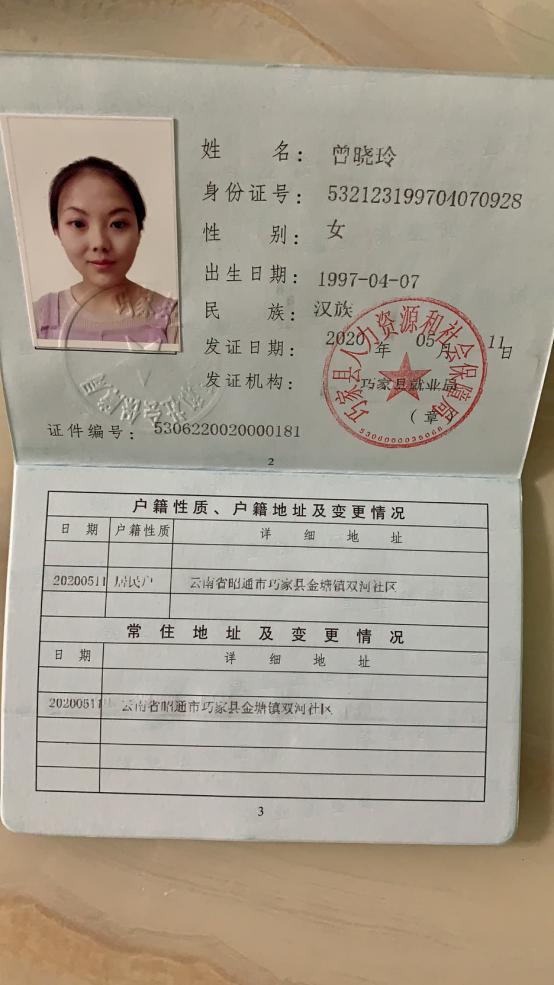 姓 名：曾晓玲
身份证号：532123199704070928
性 别：女
出生日期：1997-04-07
民 族：汉族
发证日期：2020年05月11日
发证机构：巧家县就业局
（章）
巧家县人力资源和社会保障局
证件编号：5306220020000181
2
户籍性质、户籍地址及变更情况
日 期 户籍性质 详 细 地 址
20200511 居民户 云南省昭通市巧家县金塘镇双河社区
常 住 地 址 及 变 更 情 况
日 期 详 细 地 址
20200511 云南省昭通市巧家县金塘镇双河社区
3